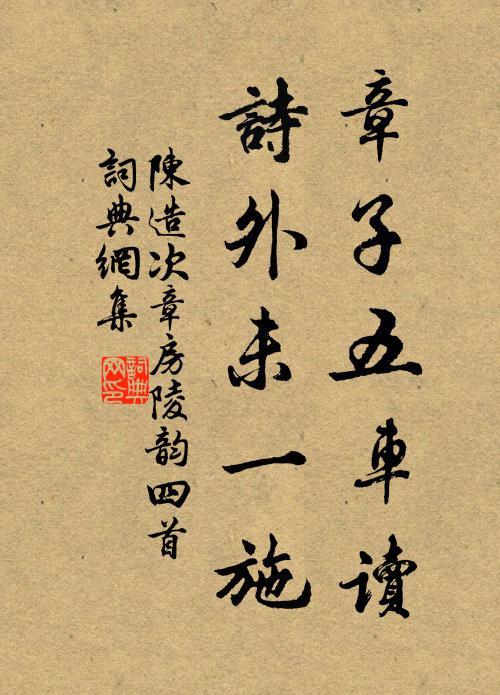 章子五車讀
詩外未一施
陳造次章房陵韵四首
詞典網集
詞典
网印